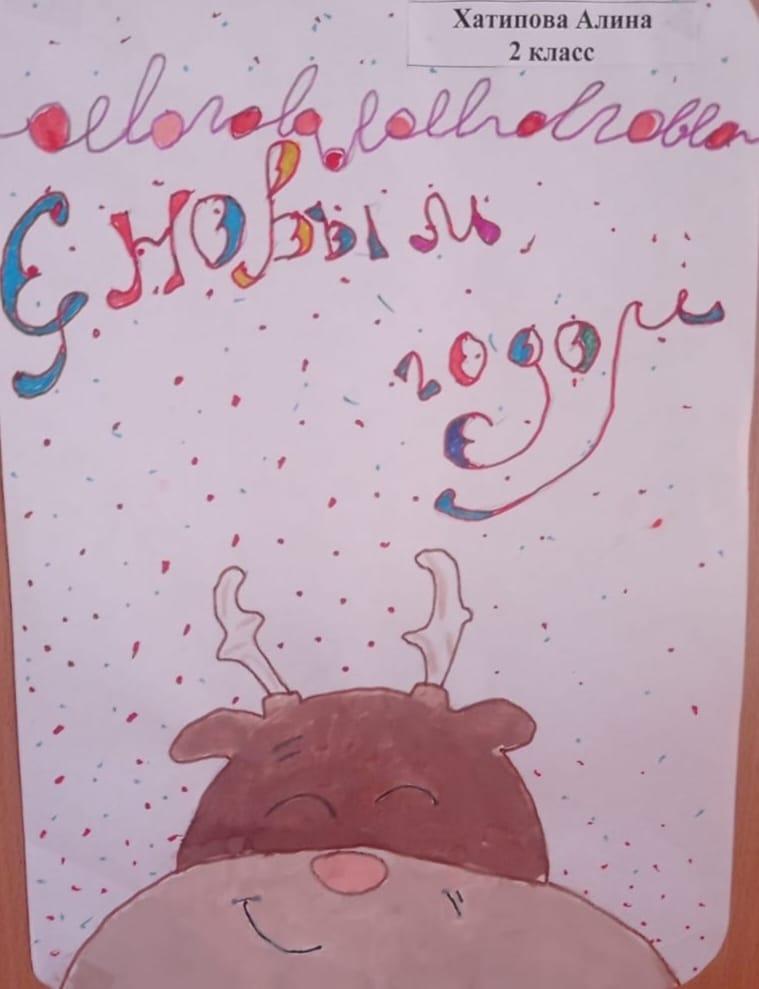 Хатипова Алина
2 класс
С новым
годом